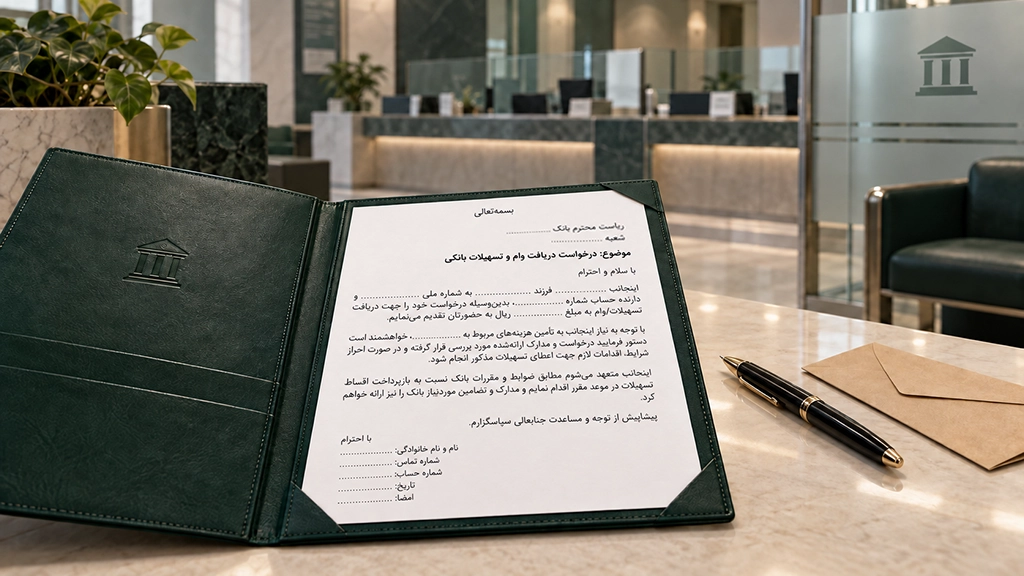 بسمه‌تعالی
ریاست محترم بانک ......................
شعبه ......................
موضوع: درخواست دریافت وام و تسهیلات بانکی
با سلام و احترام
اینجانب ................ فرزند ................ به شماره ملی ................ و
دارنده حساب شماره ................، بدین‌وسیله درخواست خود را جهت دریافت
تسهیلات/وام به مبلغ ................ ریال به حضورتان تقدیم می‌نمایم.
با توجه به نیاز اینجانب به تأمین هزینه‌های مربوط به ................، خواهشمند است
دستور فرمایید درخواست و مدارک ارائه‌شده مورد بررسی قرار گرفته و در صورت احراز
شرایط، اقدامات لازم جهت اعطای تسهیلات مذکور انجام شود.
اینجانب متعهد می‌شوم مطابق ضوابط و مقررات بانک نسبت به بازپرداخت اقساط
تسهیلات در موعد مقرر اقدام نمایم و مدارک و تضامین موردنیاز بانک را نیز ارائه خواهم
کرد.
پیشاپیش از توجه و مساعدت جنابعالی سپاسگزارم.
با احترام
نام و نام خانوادگی: ................
شماره تماس: ................
شماره حساب: ................
تاریخ: ................
امضا: ................